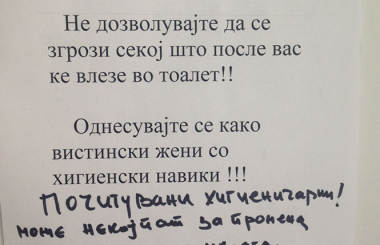 Не дозволувајте да се
згрози секој што после вас
ке влезе во тоалет!!
Однесувајте се како
вистински жени со
хигиенски навики !!!
Почитувани хигиеничарки!
може некојпат за промена